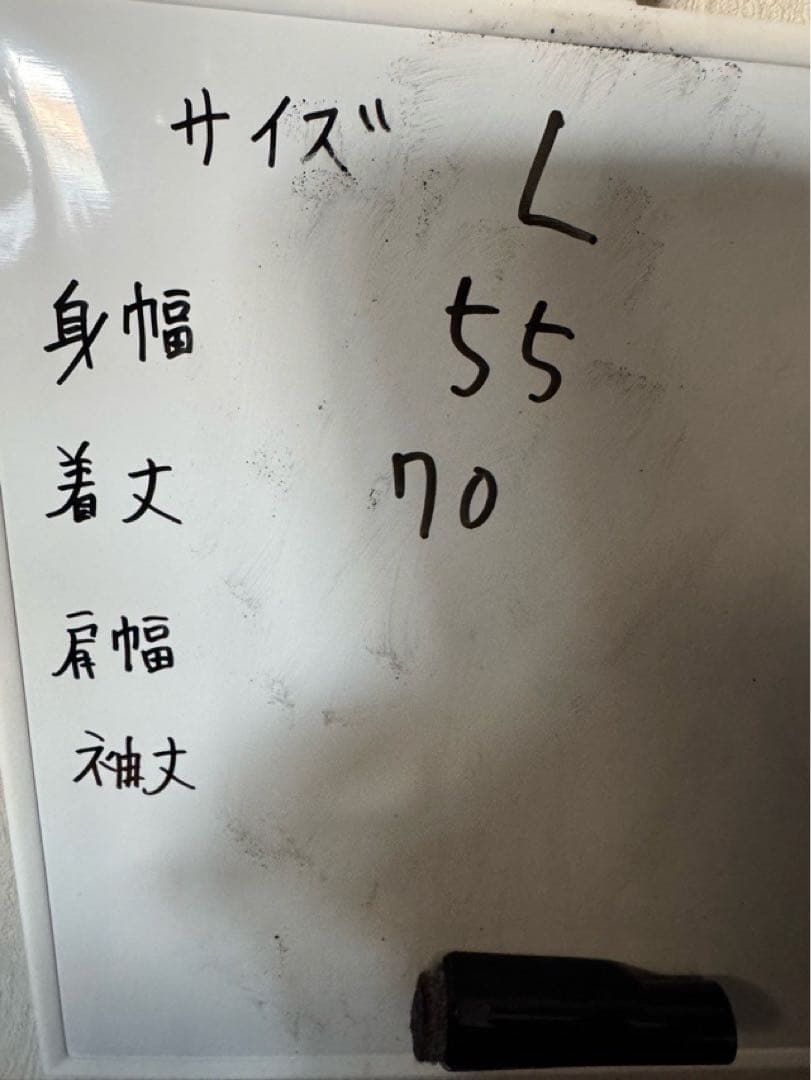 サイズ L
身幅 55
着丈 70
肩幅
袖丈